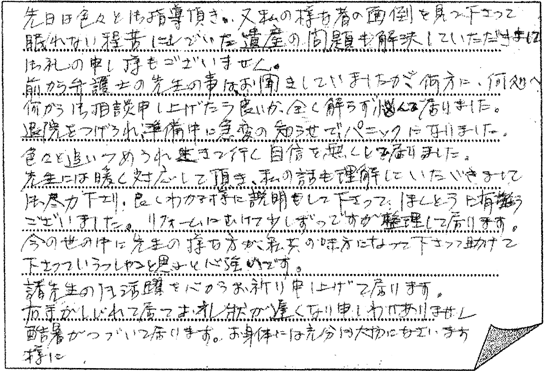 先日は色々と御指導頂き。又私の様な者の面倒を見て下さって
眠れない程苦にしていた遺産の問題も解決していただきまして
御礼の申し様もございません。
前から弁護士の先生の事はお聞きしていましたが何方に、何処へ
何から御相談申し上げたら良いか、全く解らず悩んで居りました。
退院をつげられ準備中に急変の知らせでパニックになりました。
色々と追いつめられ生きて行く自信を無くして居りました。
先生には暖く対応して頂き、私の話も理解していただきまして
御尽力下さり、良くわかる様に説明もして下さって、ほんとうに有難う
ございました。リフォームにむけて少しずつですが整理して居ります。
今の世の中に先生の様な方が私共の味方になって下さって助けて
下さっていらっしゃると思うと心強いです。
諸先生の御活躍を心からお祈り申し上げて居ります。
右手がしびれて居てお礼状が遅くなり申しわけありません
酷暑がつづいて居ります。お身体には充分御大切になさいます
様に